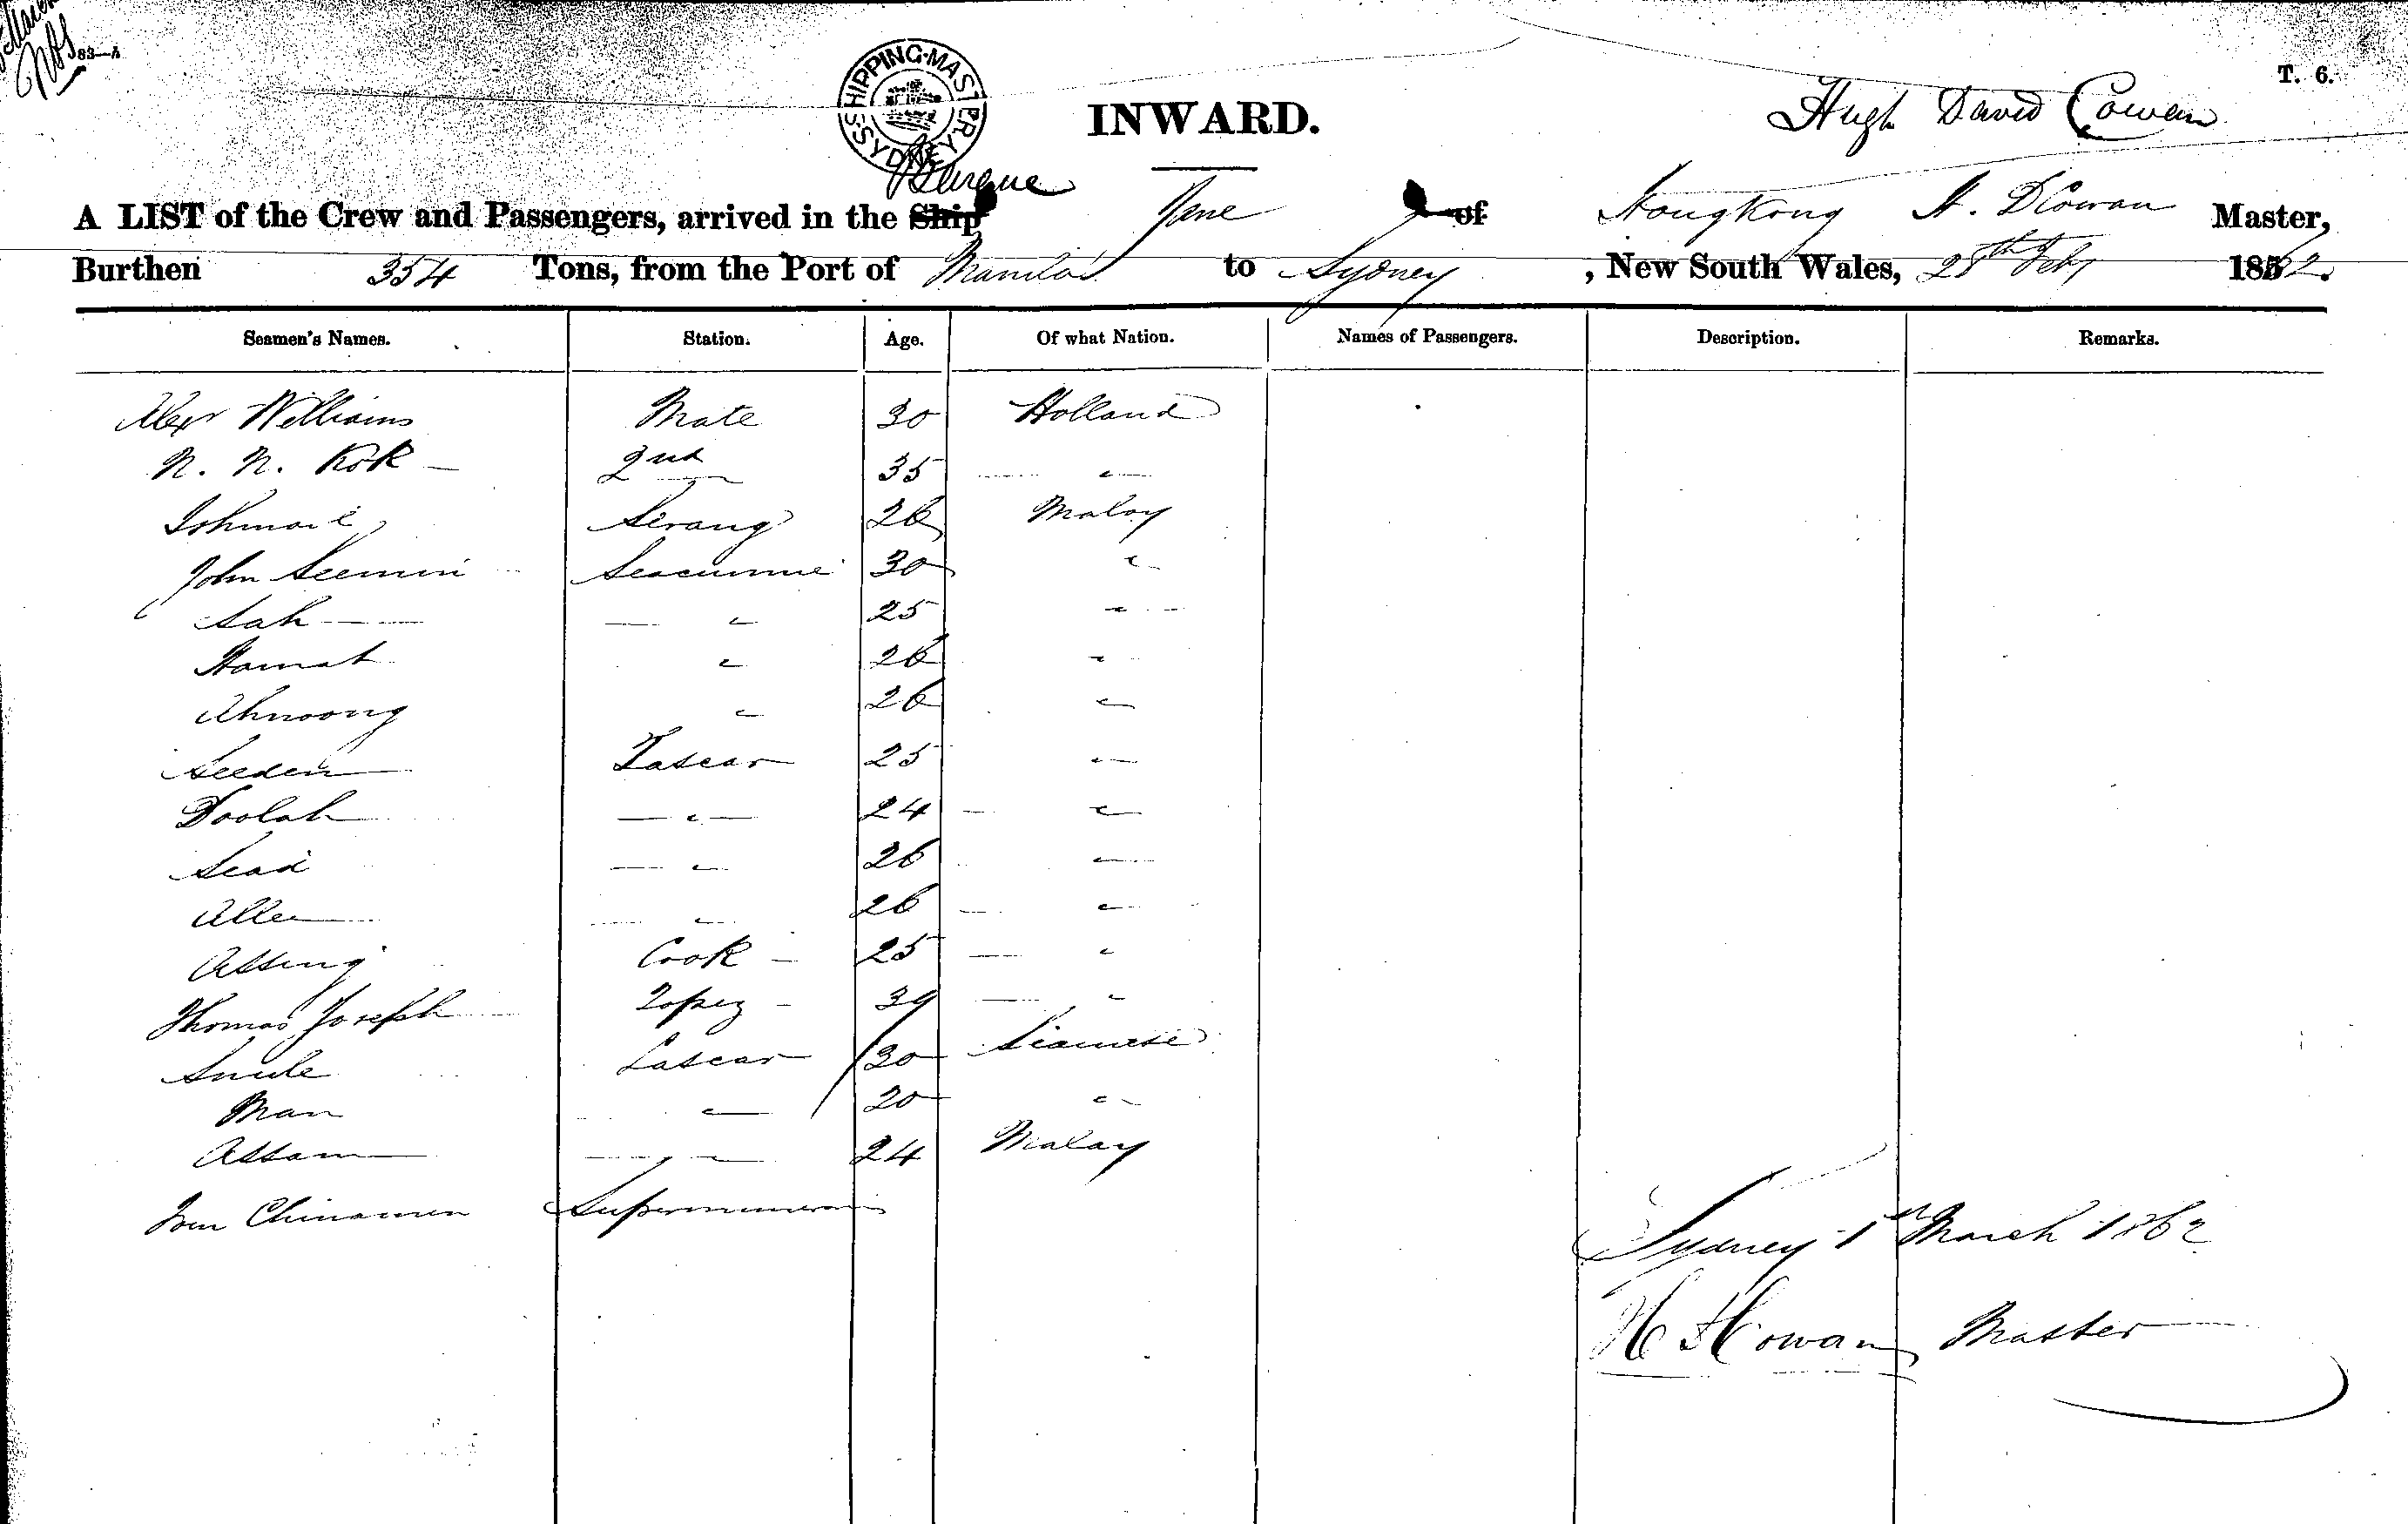 83—A
T. 6.
SHIPPING MASTER. SYDNEY
INWARD.
Hugh David Cowan
Barque
A LIST of the Crew and Passengers, arrived in the Ship Jane of HongKong H. D Cowan Master,
Burthen 354 Tons, from the Port of Manila to Sydney, New South Wales, 28th Feby 1862.
Seamen's Names. Station. Age. Of what Nation. Names of Passengers. Description. Remarks.
Alexr Williams Mate 30 Holland
N. N. Kok 2nd 35 "
Ishmail Serang 26 Malay
John Seemin Seacunnie 30 "
Sah " 25 "
Hamat " 26 "
Ahnoong " 26 "
Seeden Lascar 25 "
Doolah " 24 "
Sead " 26 "
Allee " 26 "
Assing Cook 25 "
Thomas Joseph Topez 39 "
Lascar 30 Siamese
Man " 20 "
Assam " 24 Malay
Chinamen
Sydney 1st March 1862
Cowan Master